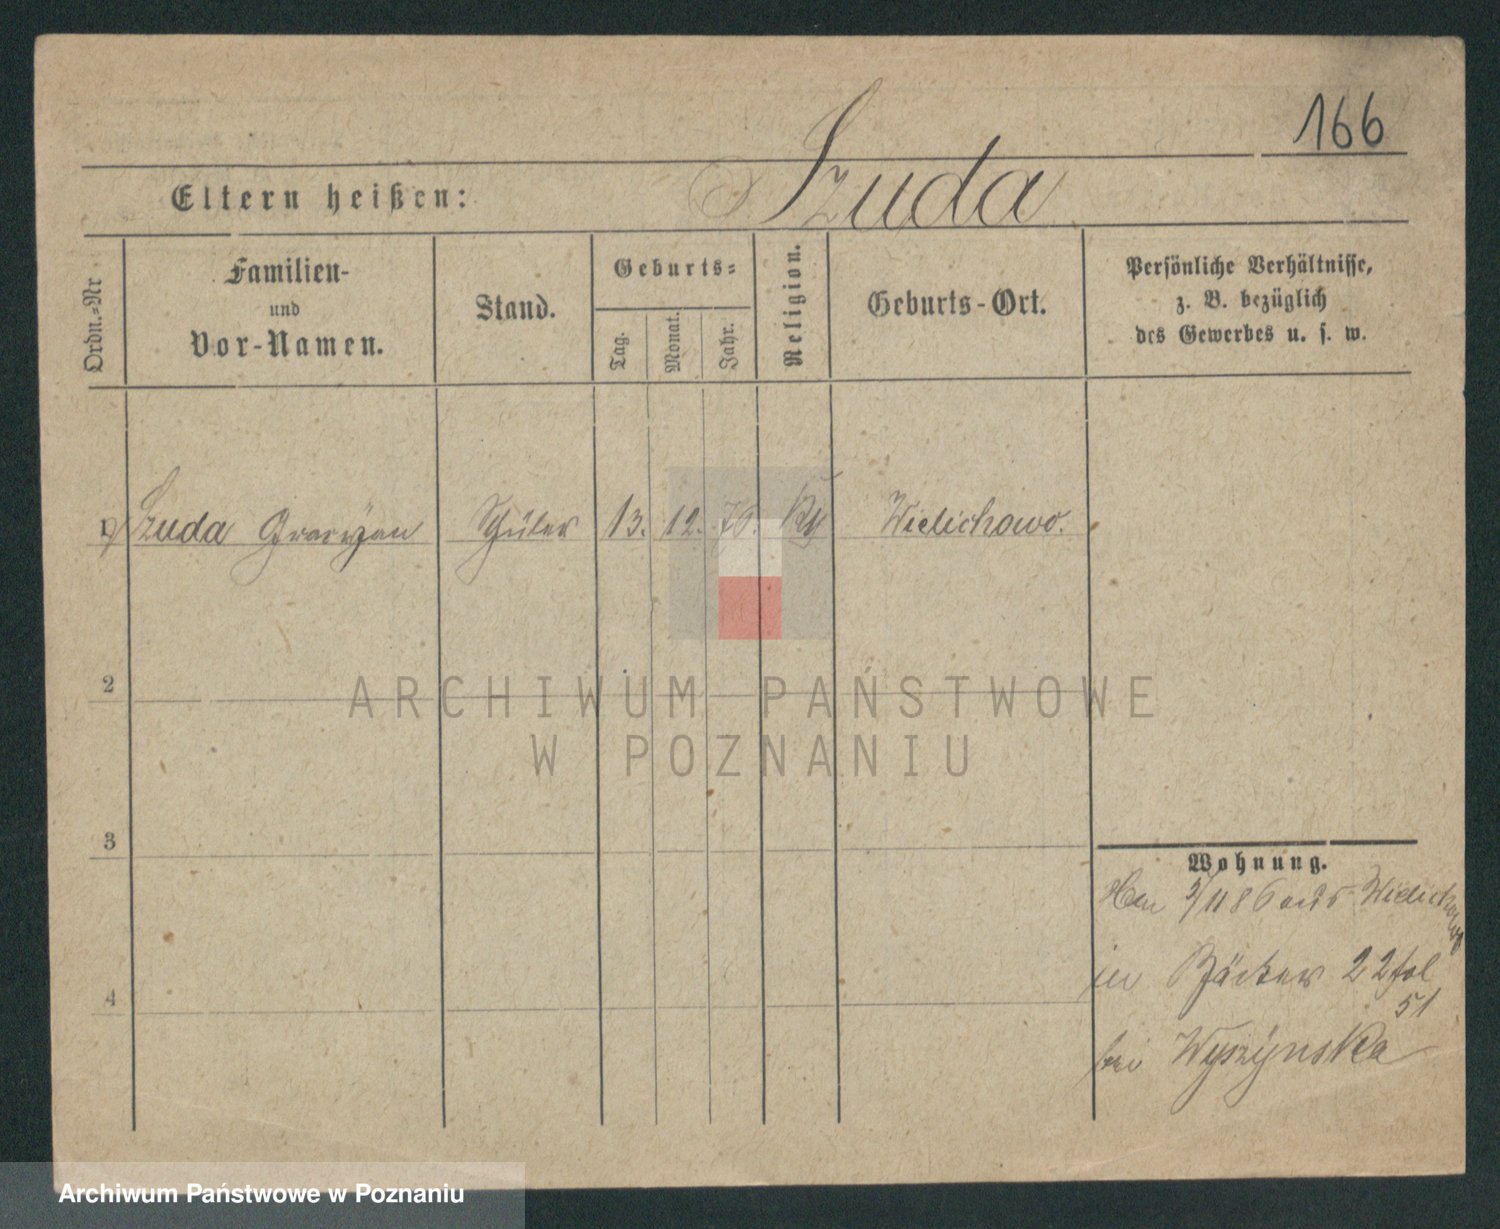 166
Szuda
Eltern heißen:
Ordn.-Nr
Familien-
und
Vor-Namen.
Stand.
Geburts-
Tag.
Monat.
Jahr.
Religion.
Geburts-Ort.
Persönliche Verhältnisse,
z. B. bezüglich
des Gewerbes u. s. w.
1 Szuda Schüler 13. 12. Wielichowo.
2
3
4
Wohnung.
3/11 86 aus Wielichowo
in Bäcker 22 fol
51
bei Wyszynska
ARCHIWUM PAŃSTWOWE
W POZNANIU
Archiwum Państwowe w Poznaniu